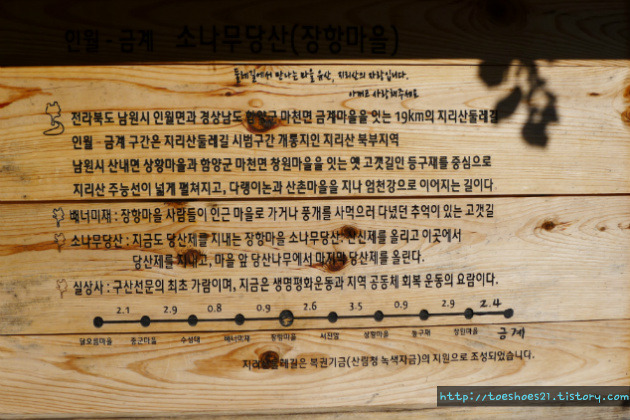 인월 - 금계 소나무당산(장항마을)
둘레길에서 만나는 마을 유산, 지리산의 자랑입니다.
아끼고 사랑해주세요
전라북도 남원시 인월면과 경상남도 함양군 마천면 금계마을을 잇는 19km의 지리산둘레길
인월 - 금계 구간은 지리산둘레길 시범구간 개통지인 지리산 북부지역
남원시 산내면 상황마을과 함양군 마천면 창원마을을 잇는 옛 고갯길인 등구재를 중심으로
지리산 주능선이 넓게 펼쳐지고, 다랭이논과 산촌마을을 지나 엄천강으로 이어지는 길이다
배너미재 : 장항마을 사람들이 인근 마을로 가거나 풍개를 사먹으러 다녔던 추억이 있는 고갯길
소나무당산 : 지금도 당산제를 지내는 장항마을 소나무당산. 산신제를 올리고 이곳에서
당산제를 지내고, 마을 앞 당산나무에서 마지막 당산제를 올린다.
실상사 : 구산선문의 최초 가람이며, 지금은 생명평화운동과 지역 공동체 회복 운동의 요람이다.
2.1 2.9 0.8 0.9 2.6 3.5 0.9 2.9 2.4
달오름마을 중군마을 수성대 배너미재 장항마을 서진암 상황마을 등구재 창원마을 금계
지리산둘레길은 복권기금(산림청 녹색자금)의 지원으로 조성되었습니다.
http://toeshoes21.tistory.com